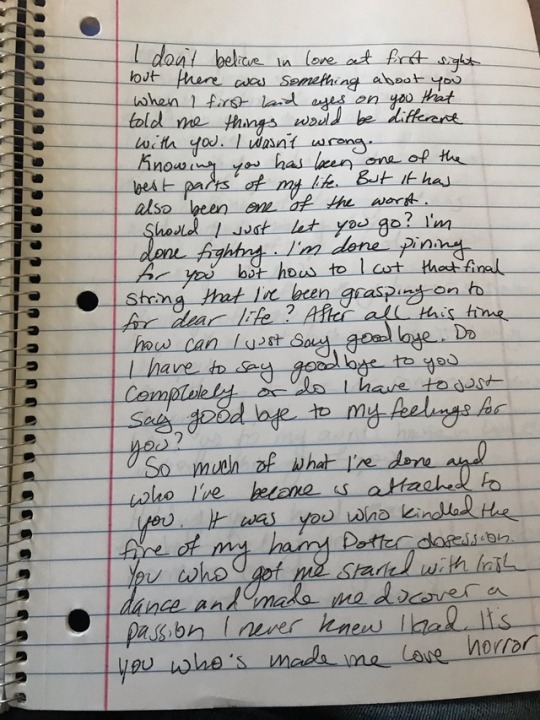 I don't believe in love at first sight
but there was something about you
when I first laid eyes on you that
told me things would be different
with you. I wasn't wrong.
Knowing you has been one of the
best parts of my life. But it has
also been one of the worst.
Should I just let you go? I'm
done fighting. I'm done pining
for you but how to I cut that final
string that I've been grasping on to
for dear life? After all this time
how can I just say goodbye. Do
I have to say goodbye to you
completely or do I have to just
say good bye to my feelings for
you?
So much of what I've done and
who I've become is attached to
you. It was you who kindled the
fire of my harry Potter obsession.
You who got me started with Irish
dance and made me discover a
passion I never knew I had. It's
you who's made me love horror